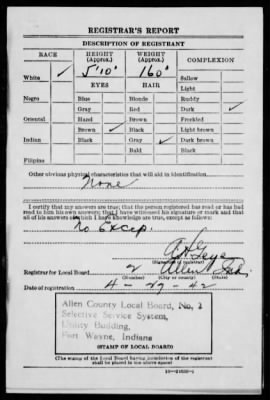 REGISTRAR'S REPORT
DESCRIPTION OF REGISTRANT
RACE
HEIGHT
(Approx.)
WEIGHT
(Approx.)
COMPLEXION
White ✓
5'10"
160
Sallow
Light
EYES
HAIR
Negro
Blue
Blonde
Ruddy
Gray
Red
Dark ✓
Oriental
Hazel
Brown
Freckled
Brown ✓
Black
Light brown
Indian
Black
Gray ✓
Dark brown
Bald
Black
Filipino
Other obvious physical characteristics that will aid in identification
None
I certify that my answers are true; that the person registered has read or has had
read to him his own answers; that I have witnessed his signature or mark and that
all of his answers of which I have knowledge are true, except as follows:
No Excep.
(Signature of registrar)
Registrar for Local Board 2 Allen Ind.
(Number) (City or county) (State)
Date of registration 4-29-42
Allen County Local Board, No. 2
Selective Service System,
Utility Building,
Fort Wayne, Indiana
(STAMP OF LOCAL BOARD)
(The stamp of the Local Board having jurisdiction of the registrant
shall be placed in the above space)